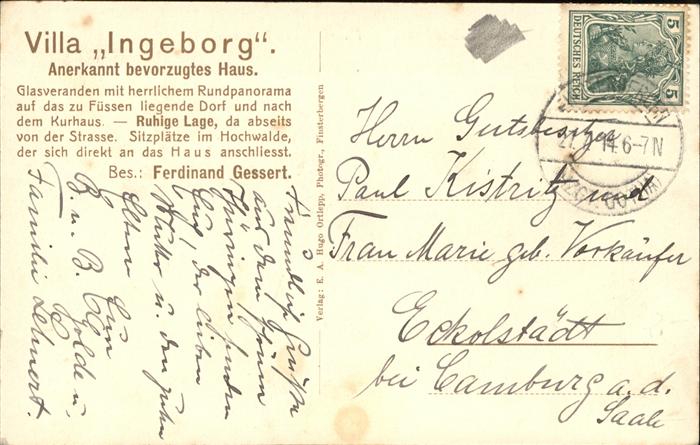 Villa „Ingeborg“.
Anerkannt bevorzugtes Haus.
Glasveranden mit herrlichem Rundpanorama
auf das zu Füssen liegende Dorf und nach
dem Kurhaus. — Ruhige Lage, da abseits
von der Strasse. Sitzplätze im Hochwalde,
der sich direkt an das Haus anschliesst.
Bes.: Ferdinand Gessert.
Freundliche Grüße
aus dem
Thüringen senden
der lieben
Mutter u. den
Eltern
B. u. B.
Familie Lehnert.
Verlag: E. A. Hugo Ortlepp, Photogr., Finsterbergen
5 DEUTSCHES REICH 5
14 6-7N
Herrn Gutsbesitzer
Paul Kistritz und
Frau Marie geb. Vorkäufer
Eckolstädt
bei Camburg a. d.
Saale